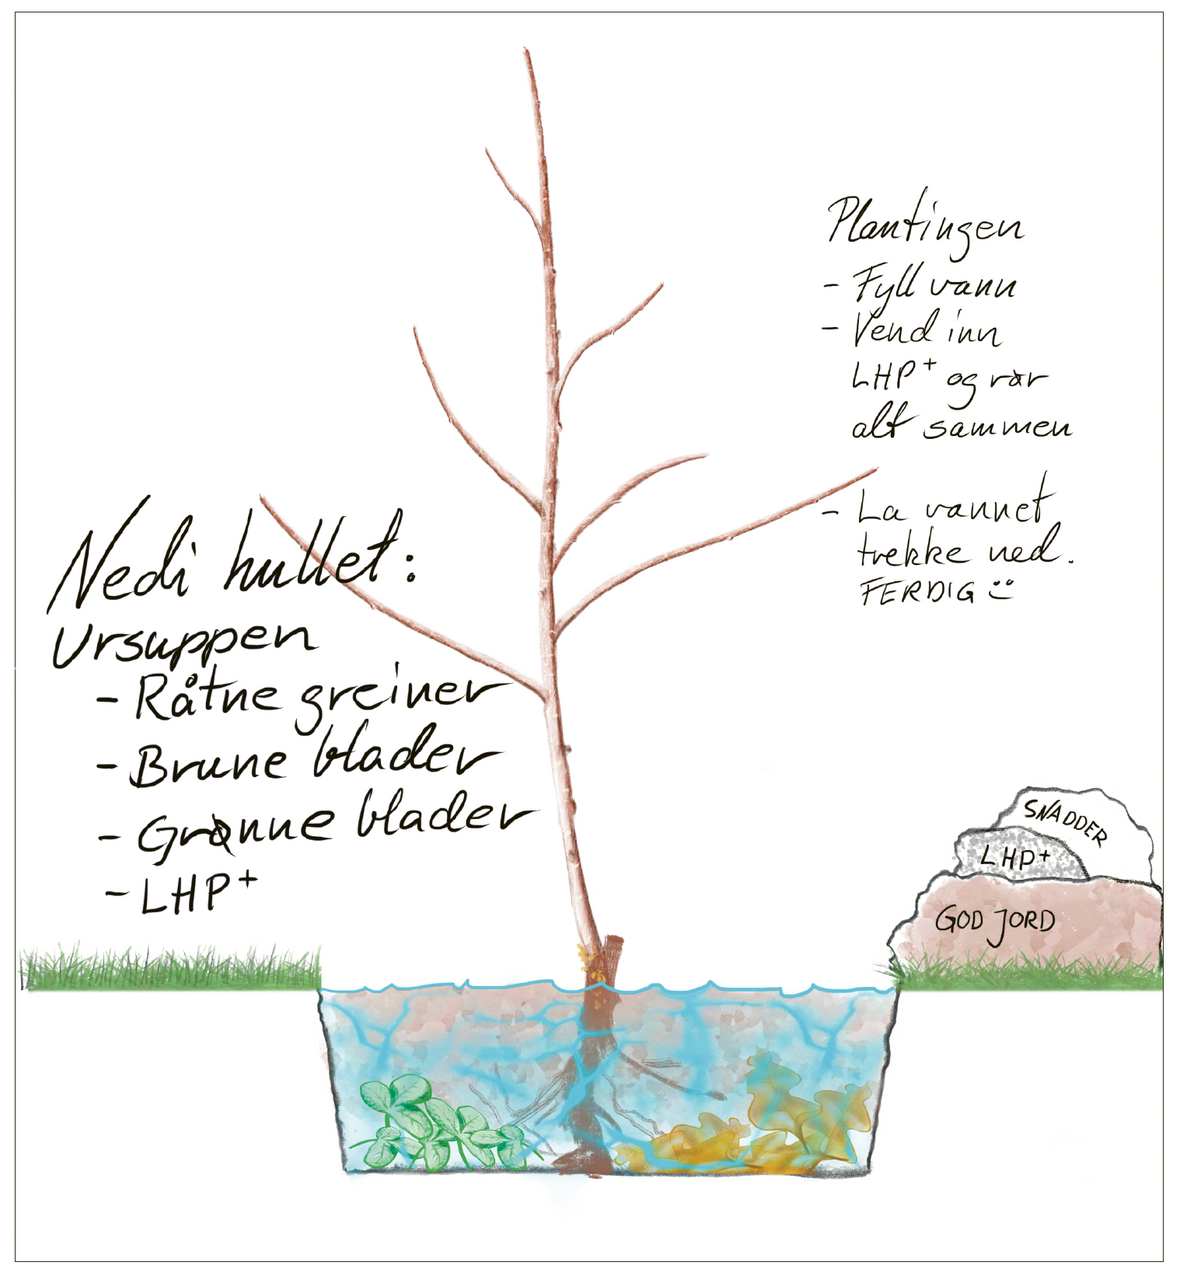 Plantingen
- Fyll vann
- Vend inn
LHP+ og rør
alt sammen
- La vannet
trekke ned.
FERDIG ☺
Nedi hullet:
Ursuppen
- Råtne greiner
- Brune blader
- Grønne blader
- LHP+
SNADDER
LHP+
GOD JORD